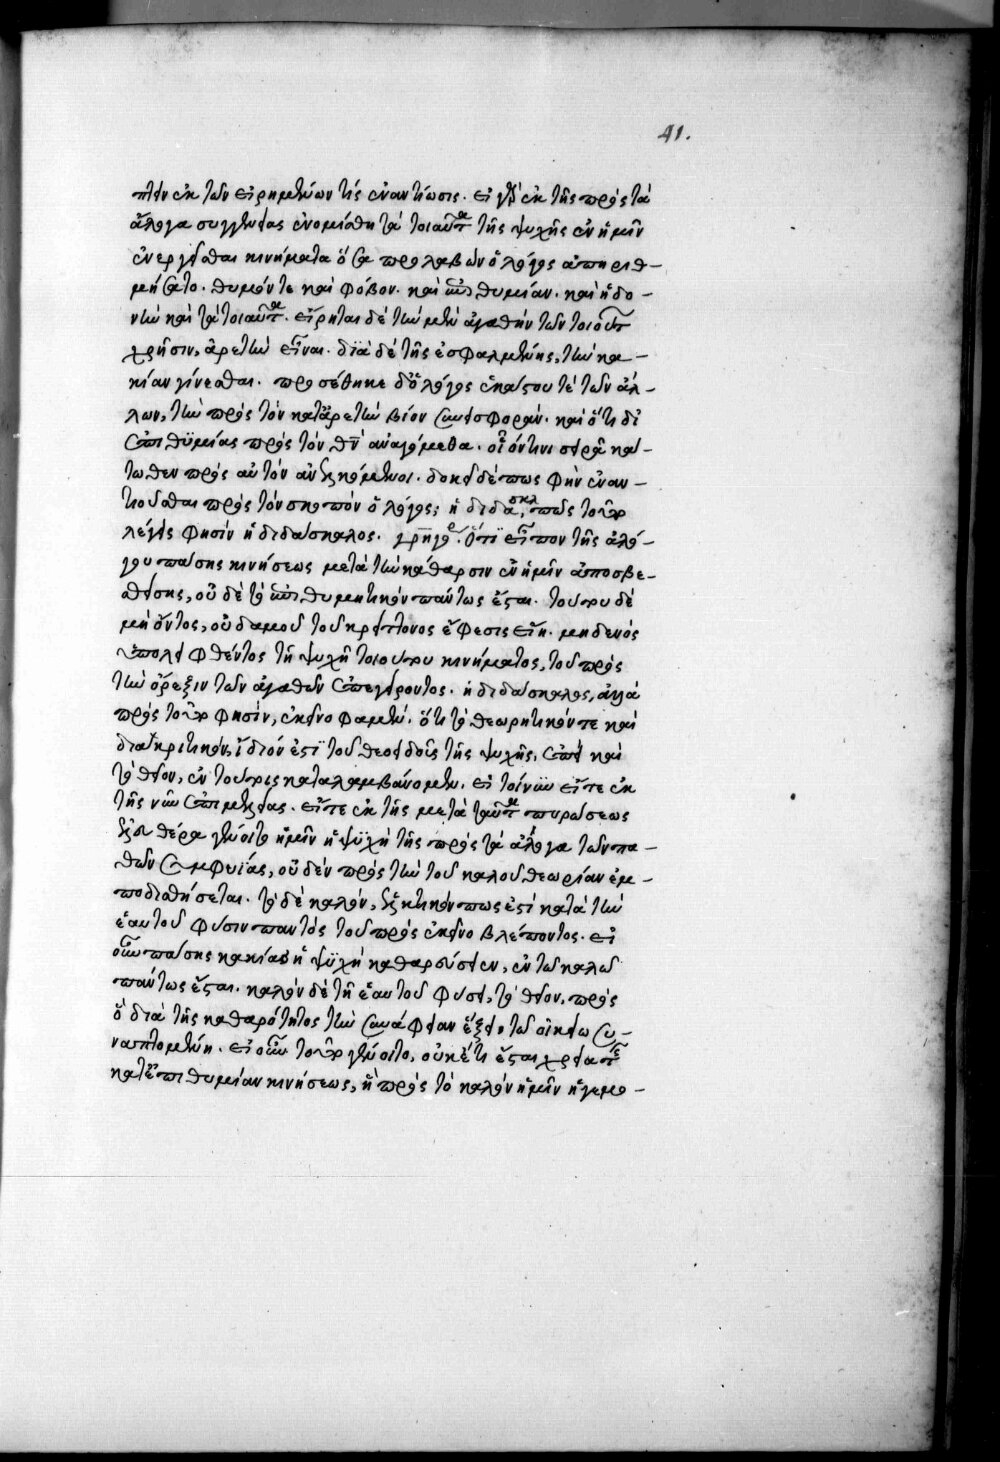 41.
πτειν ἐκ τῶν εἰρημένων τίς ἐναντίωσις. εἰ γὰρ ἐκ τῆς πρὸς τὰ
ἄλογα συγγενείας ἐνομίσθη τὰ τοιαῦτα τῆς ψυχῆς ἐν ἡμῖν
ἐνεργεῖσθαι κινήματα ὅσα προλαβὼν ὁ λόγος ἀπηριθ-
μήσατο. θυμόν τε καὶ φόβον. καὶ ἐπιθυμίαν. καὶ ἡδο-
νὴν καὶ τὰ τοιαῦτα. εἴρηται δὲ τὴν μὲν ἀγαθὴν τῶν τοιούτ
χρῆσιν, ἀρετὴν εἶναι. διὰ δὲ τῆς ἐσφαλμένης, τὴν κα-
κίαν γίνεσθαι. προσέθηκε δ' ὁ λόγος ἑκάστου τὲ τῶν ἄλ-
λων, τὴν πρὸς τὸν κατἀρετὴν βίον συνεισφοράν. καὶ ὅτι δι
ἐπιθυμίας πρὸς τὸν θν ἀναγόμεθα. οἷόν τινι σειρᾷ κά-
τωθεν πρὸς αὐτὸν ἀνελκόμενοι. δοκεῖ δέ πως φὴν ἐναν-
τιοῦσθαι πρὸς τὸν σκοπὸν ὁ λόγος; ἡ διδασκλ, πῶς τοῦτο
λέγεις φησὶν ἡ διδάσκαλος. γρηγορ. ὅτι εἶπον τῆς ἀλό-
γου πάσης κινήσεως μετὰ τὴν κάθαρσιν ἐν ἡμῖν ἀποσβε-
σθείσης, οὐδὲ τὸ ἐπιθυμητικὸν πάντως ἔσται. τούτου δὲ
μὴ ὄντος, οὐδαμοῦ τοῦ κρείττονος ἔφεσις εἴη. μηδενὸς
ὑπολειφθέντος τῇ ψυχῇ τοιούτου κινήματος, τοῦ πρὸς
τὴν ὄρεξιν τῶν ἀγαθῶν ἐπεγείροντος. ἡ διδάσκαλος, ἀλλὰ
πρὸς τοῦτο φησὶν, ἐκεῖνο φαμέν. ὅτι τὸ θεωρητικόν τε καὶ
διακριτικὸν, ἴδιόν ἐστι τοῦ θεοειδοῦς τῆς ψυχῆς, ἐπεὶ καὶ
τὸ θεῖον, ἐν τούτοις καταλαμβάνομεν. εἰ τοίνυν εἴτε ἐκ
τῆς νῦν ἐπιμελείας. εἴτε ἐκ τῆς μετὰ ταῦτα πυρώσεως
ἐλευθέρα γένοιτο ἡμῖν ἡ ψυχὴ τῆς πρὸς τὰ ἄλογα τῶν πα-
θῶν συμφυΐας, οὐδὲν πρὸς τὴν τοῦ καλοῦ θεωρίαν ἐμ-
ποδισθήσεται. τὸ δὲ καλὸν, ἑλκτικόν πως ἐστὶ κατὰ τὴν
ἑαυτοῦ φύσιν παντὸς τοῦ πρὸς ἐκεῖνο βλέποντος. εἰ
οὖν πάσης κακίας ἡ ψυχὴ καθαρεύσειεν, ἐν τῷ καλῷ
πάντως ἔσται. καλὸν δὲ τῇ ἑαυτοῦ φύσει, τὸ θεῖον. πρὸς
ὃ διὰ τῆς καθαρότητος τὴν συνάφειαν ἕξει, τῷ οἰκείῳ συ-
ναπτομένη. εἰ οὖν τοῦτο γένοιτο, οὐκέτι ἔσται χρεία τῆς
κατἐπιθυμίαν κινήσεως, ἣ πρὸς τὸ καλὸν ἡμῖν ἡγεμο-